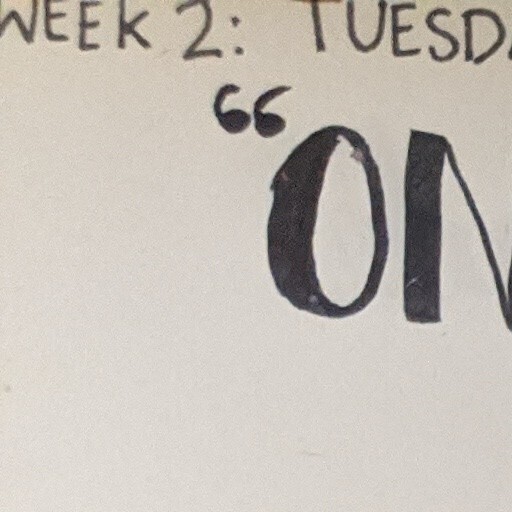 WEEK 2: TUESDA
“ON